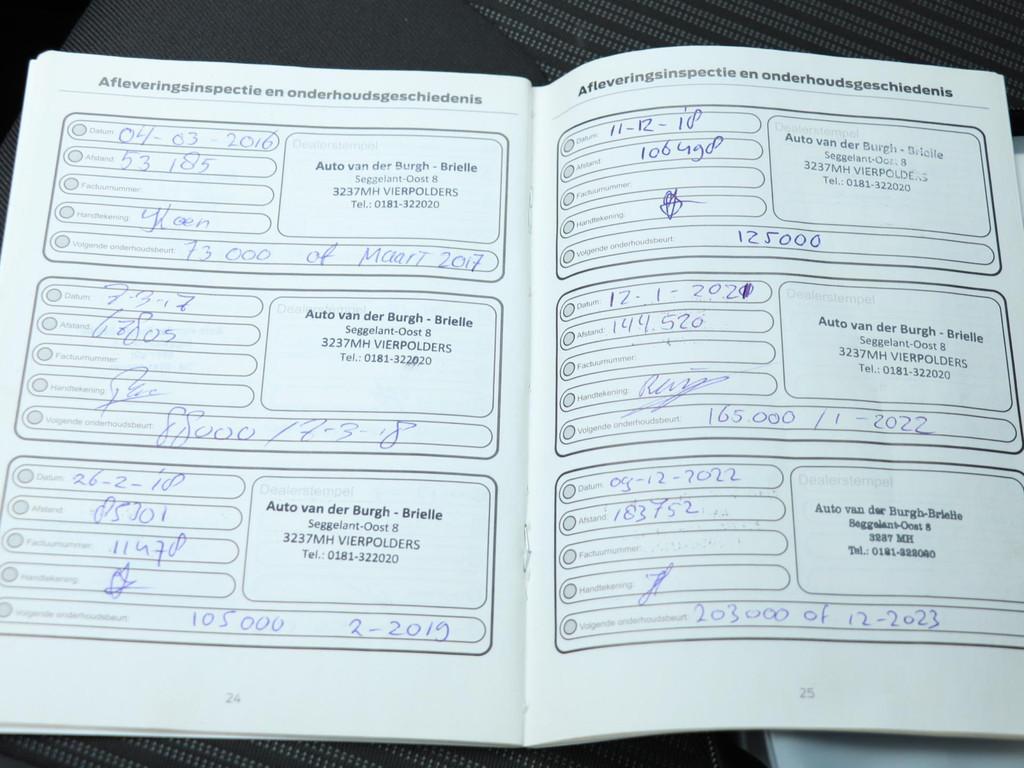 Afleveringsinspectie en onderhoudsgeschiedenis
Datum: 04-03-2016
Afstand: 53 185
Factuurnummer:
Handtekening: Koen
Volgende onderhoudsbeurt: 73 000 of Maart 2017
Dealerstempel
Auto van der Burgh - Brielle
Seggelant-Oost 8
3237MH VIERPOLDERS
Tel.: 0181-322020
Datum: 7-3-17
Afstand: 68805
Factuurnummer:
Handtekening:
Volgende onderhoudsbeurt: 88000 / 7-3-18
Auto van der Burgh - Brielle
Seggelant-Oost 8
3237MH VIERPOLDERS
Tel.: 0181-322020
Datum: 26-2-'18
Afstand: 85301
Factuurnummer: 11478
Handtekening:
Volgende onderhoudsbeurt: 105000 2-2019
Dealerstempel
Auto van der Burgh - Brielle
Seggelant-Oost 8
3237MH VIERPOLDERS
Tel.: 0181-322020
24
Afleveringsinspectie en onderhoudsgeschiedenis
Datum: 11-12-'18
Afstand: 106498
Factuurnummer:
Handtekening:
Volgende onderhoudsbeurt: 125000
Dealerstempel
Auto van der Burgh - Brielle
Seggelant-Oost 8
3237MH VIERPOLDERS
Tel.: 0181-322020
Datum: 12-1-2021
Afstand: 144.520
Factuurnummer:
Handtekening:
Volgende onderhoudsbeurt: 165.000 / 1-2022
Dealerstempel
Auto van der Burgh - Brielle
Seggelant-Oost 8
3237MH VIERPOLDERS
Tel.: 0181-322020
Datum: 09-12-2022
Afstand: 183752
Factuurnummer:
Handtekening:
Volgende onderhoudsbeurt: 203000 of 12-2023
Dealerstempel
Auto van der Burgh-Brielle
Seggelant-Oost 8
3237 MH
Tel.: 0181-322020
25